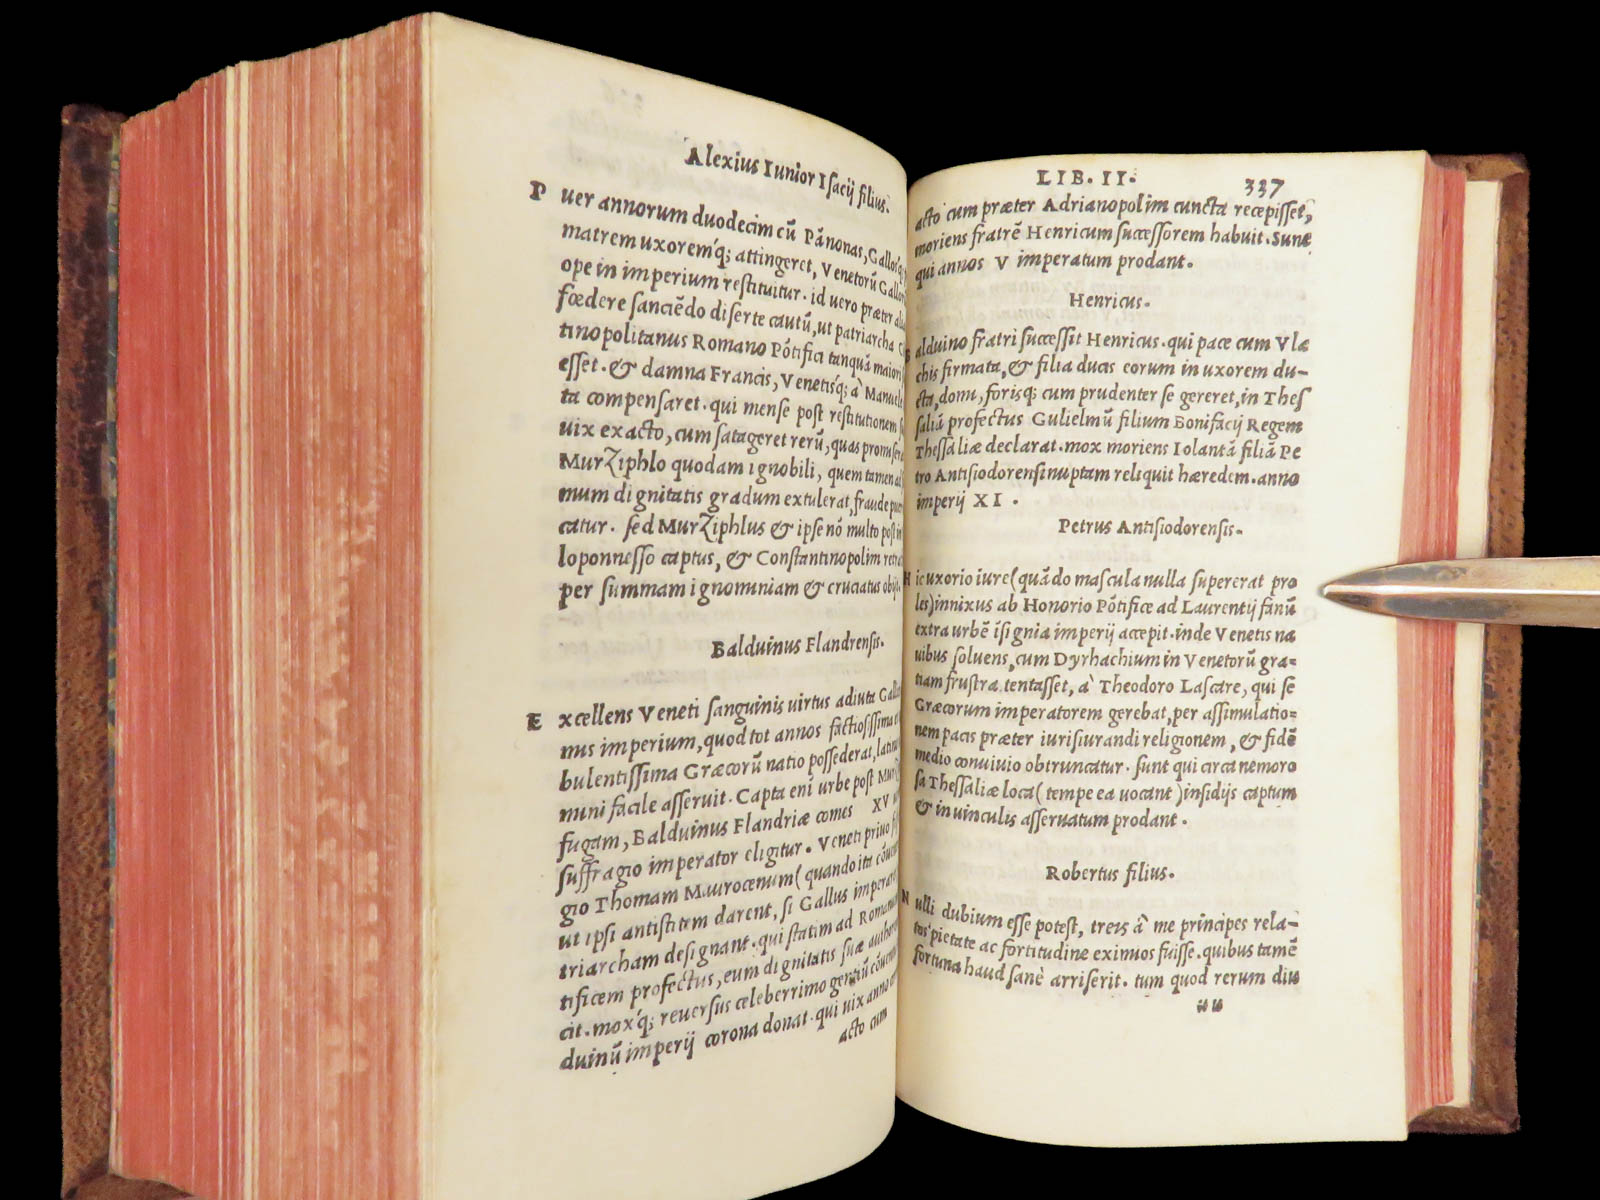 Alexius Iunior Isacij filius.
P uer annorum duodecim cū Pānonas, Gallosq;
matrem uxoremq́; attingeret, Venetorū Gallor
ope in imperium restituitur. id uero præter ali
fœdere sanciēdo diserte cautū, ut patriarcha C
tinopolitanus Romano Pōtifici tanquā maiori
esset. & damna Francis, Venetisq́; à Manuele
ta compensaret. qui mense post restitutionem
uix exacto, cum satageret rerū, quas promiser
Murziphlo quodam ignobili, quem tamen ad
mum dignitatis gradum extulerat, fraude
catur. sed Murziphlus & ipse nō multo post in
loponnesso captus, & Constantinopolim retra
per summam ignominiam & cruciatus obijt.
Balduinus Flandrensis.
E xcellens Veneti sanguinis uirtus adiuta Gallo
mus imperium, quod tot annos factiosissima
bulentissima Græcorū natio possederat, latino
muni facile asseruit. Capta eni urbe post Murz
fugam, Balduinus Flandriæ comes XV
suffragio imperator eligitur. Veneti priuo
gio Thomam Maurocenum (quando ita cōuen
ut ipsi antistitem darent, si Gallus imperar
triarcham designant. qui statim ad Romanum
tificem profectus, eum dignitatis suæ author
cit. moxq́; reuersus celeberrimo gentiū cōuen
duinū imperij corona donat. qui uix anno
acto cum
LIB. II. 337
acto cum præter Adrianopolim cuncta recepisset,
moriens fratrē Henricum successorem habuit. Sunt
qui annos V imperatum prodant.
Henricus.
B alduino fratri successit Henricus. qui pace cum Vlæ
chis firmata, & filia ducis eorum in uxorem du-
cta, domi, forisq; cum prudenter se gereret, in Thes
saliā profectus Gulielmū filium Bonifacij Regem
Thessaliæ declarat. mox moriens Iolantā filiā Pe
tro Antisiodorensi nuptam reliquit hæredem. anno
imperij XI.
Petrus Antisiodorensis.
H ic uxorio iure (quādo mascula nulla supererat pro
les) innixus ab Honorio Pōtifice ad Laurentij fanū
extra urbē īsignia imperij accepit. inde Venetis na
uibus soluens, cum Dyrhachium in Venetorū gra=
tiam frustra tentasset, à Theodoro Lascare, qui se
Græcorum imperatorem gerebat, per assimulatio=
nem pacis præter iurisiurandi religionem, & fidē
medio conuiuio obtruncatur. sunt qui circa nemoro
sa Thessaliæ loca (tempe ea uocant) insidijs captum
& in uinculis asseruatum prodant.
Robertus filius.
N ulli dubium esse potest, treis à me principes rela-
tos pietate ac fortitudine eximios fuisse. quibus tamē
fortuna haud sanè arriserit. tum quod rerum diu